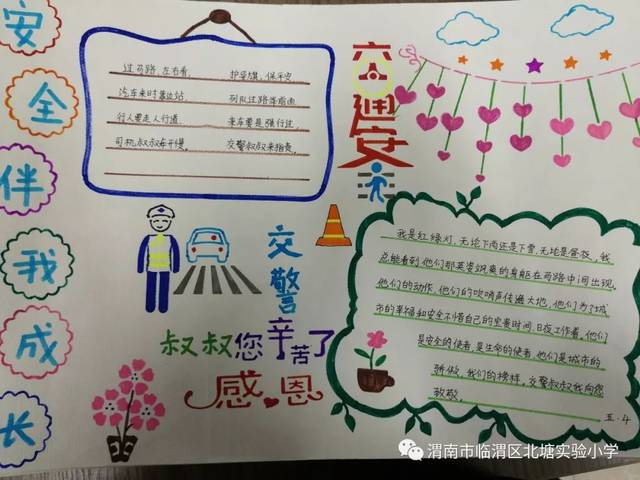 安
全
伴
我
成
长
过马路,左右看, 护安旗,保平安
汽车来时靠边站, 列队过路排两面
行人要走人行道 来车要是强行过,
司机叔叔车开慢, 交警叔叔来指责,
交通安
交警
叔叔您辛苦了
感恩
我是红绿灯,无论下雨还是下雪,无论是昼夜,我
总能看到他们那英姿飒爽的身躯在马路中间出现,
他们的动作,他们的吹哨声传遍大地,他们为了城
市的幸福和安全不惜自己的宝贵时间,日夜工作着,他们
是安全的使者,是生命的使者,他们是城市的
骄傲,我们的榜样,交警叔叔我向您
致敬。
五·4
渭南市临渭区北塘实验小学